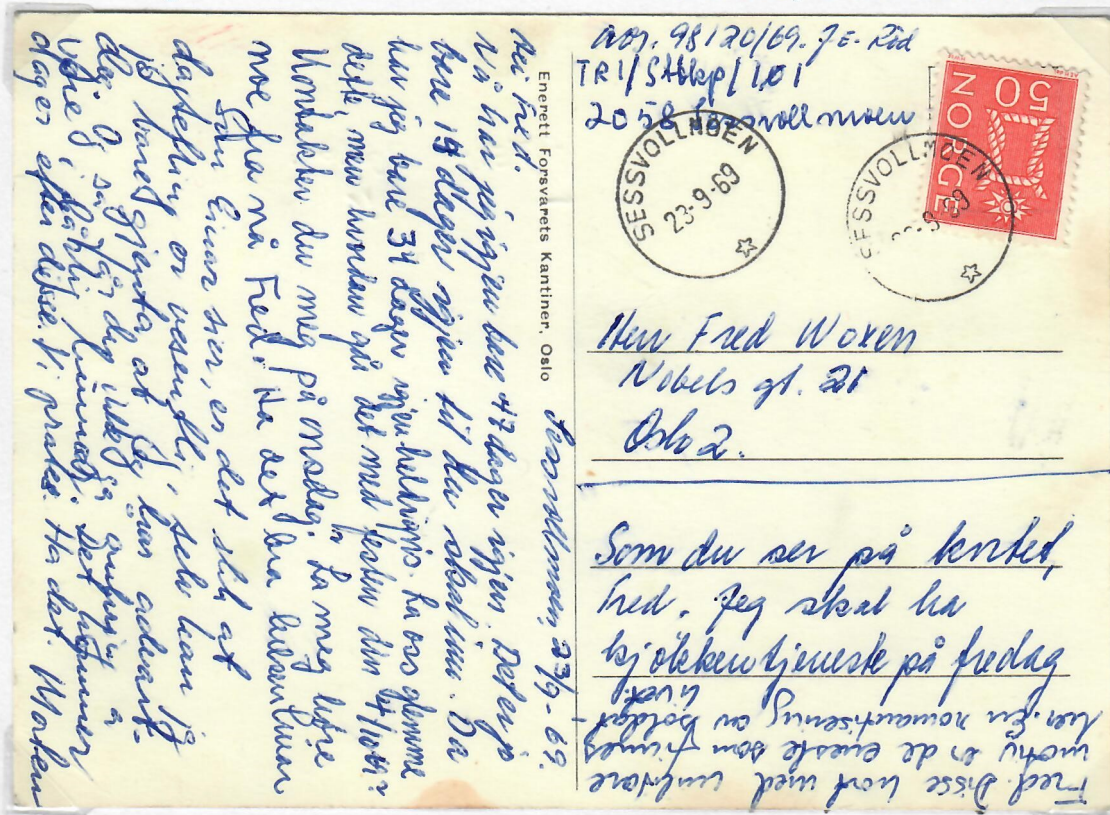 98120/69. J.E. Rød
TRI/Stbkp/101
2058 Sessvollmoen
SESSVOLLMOEN
23-9-69
SESSVOLLMOEN
NORGE
50
Herr Fred Woxen
Nobels gt. 21
Oslo 2.
Som du ser på kortet,
Fred. Jeg skal ha
kjøkkentjeneste på fredag
Fred. Disse kort med militære
motiv er de eneste som finnes
her. En romantisering av soldat-
livet.
Enerett Forsvarets Kantiner, Oslo
Sessvollmoen, 23/9-69.
Hei Fred.
Nå har jeg igjen bare 47 dager igjen. Det er jo
bare 19 dager igjen til du skal inn. Da
har jeg bare 34 dager igjen heldigvis. La oss glemme
dette, men hvordan går det med festen din 4/10-69?
Kontakter du meg på onsdag? La meg høre
noe fra nå Fred. Ha det bra hilsen Einar
Som Einar sier, er det slik at
dagtelling er vesentlig, selv kan jeg
bare gjenta at jeg har advart
deg. Jeg sa
dager efter dibse. Vi prates. Ha det. Morten